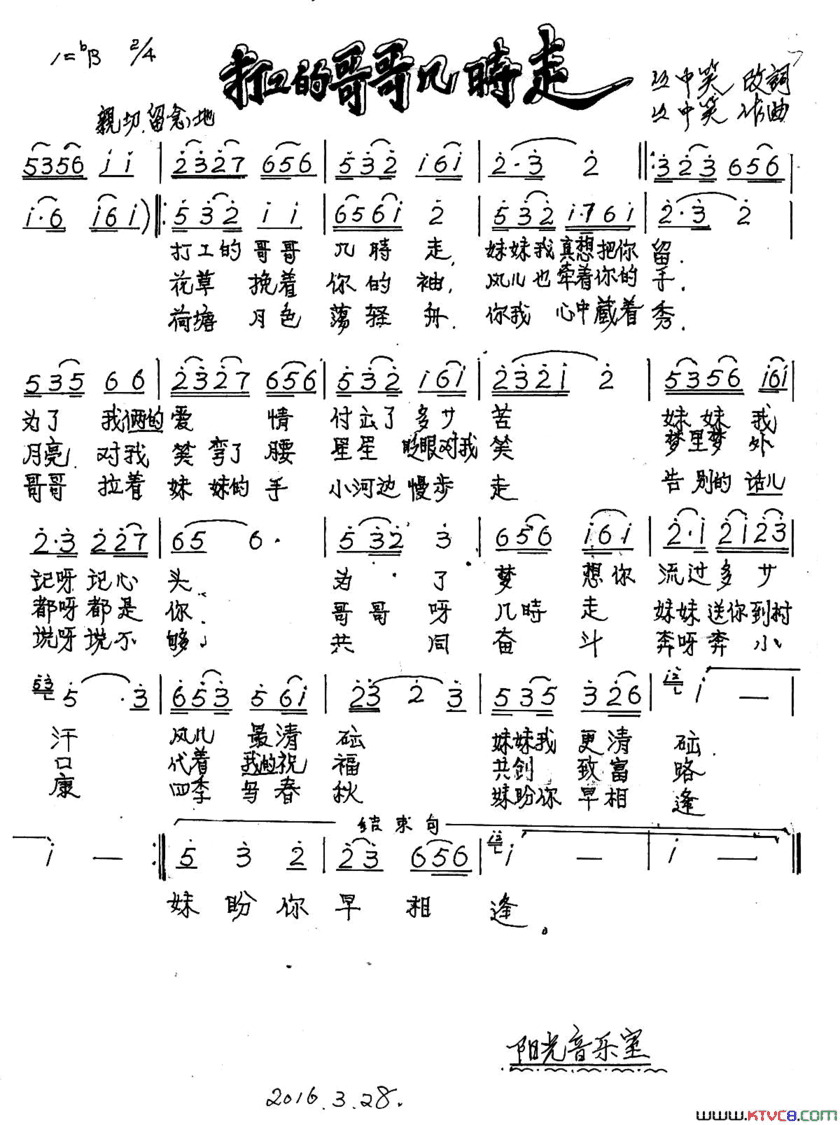 1=ᵇB 2/4
打工的哥哥几時走
丛中笑 改詞
親切、留念地
丛中笑 作曲
5356 i i | 2327 656 | 532 i6i | 2·3 2 ‖: 323 656 |
i·6 i6i ) ‖: 532 i i | 6561 2 | 532 i·76i | 2·3 2 |
打工的哥哥几時走,妹妹我真想把你留.
花草挽着你的袖,风儿也牵着你的手.
荷塘月色荡轻舟.你我心中藏着秀.
535 6 6 | 2327 656 | 532 i6i | 2321 2 | 5356 i6i |
为了我俩的爱情付出了多少苦妹妹我
月亮对我笑弯了腰星星眨眼对我笑梦里梦外
哥哥拉着妹妹的手小河边慢步走告别的话儿
2·3 227 | 65 6· | 532 3 | 656 i6i | 2·i 2i23 |
記呀記心头.为了梦想你流过多少
都呀都是你.哥哥呀几時走妹妹送你到村
説呀説不够共同奋斗奔呀奔小
5 · 3 | 653 56i | 23 2 3 | 535 326 | i — |
汗风儿最清础妹妹我更清础.
口代着我的祝福共创致富路
康四季与春秋妹盼你早相逢
结束句
i — :‖ 5 3 2 | 23 656 | i — | i — ‖
妹盼你早相逢。
阳光音乐室
2016.3.28.
www.KTVC8.com